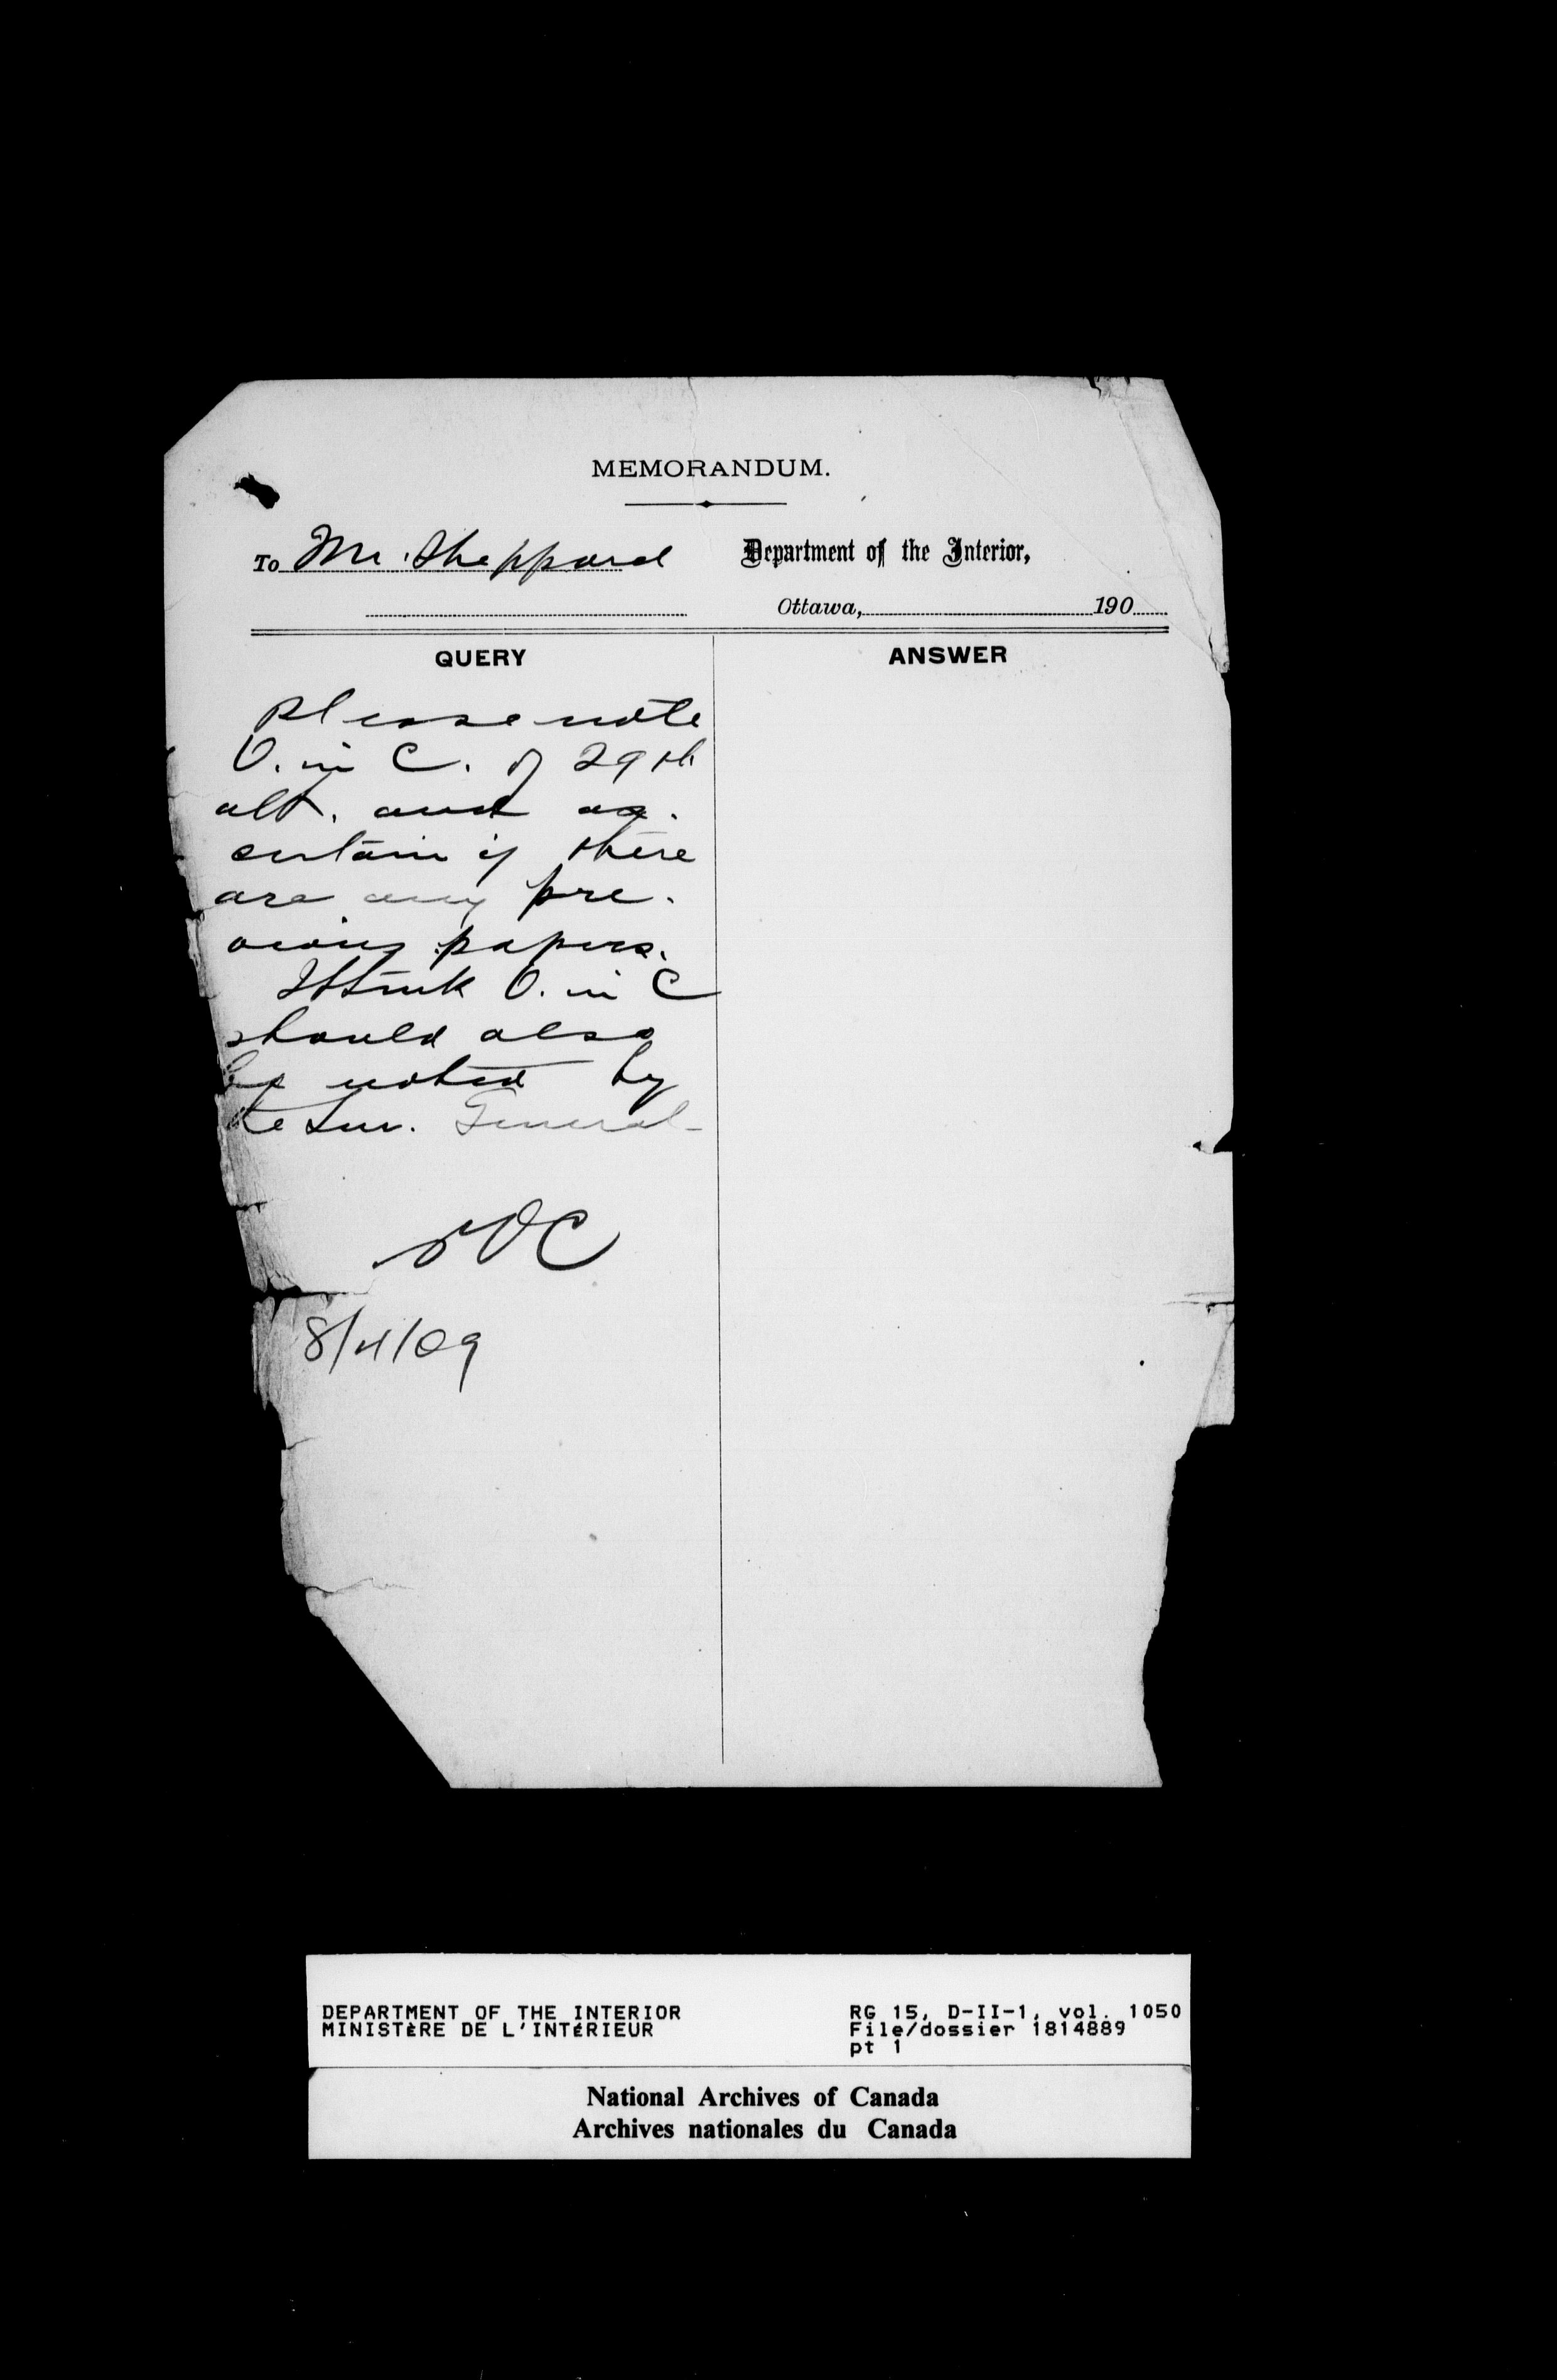 MEMORANDUM.
To Mr. Sheppard
Department of the Interior,
Ottawa, 190
QUERY
ANSWER
Please note
O. in C. of 29th
ult. and as-
certain if there
are any pre-
vious papers.
I think O. in C
should also
be noted by
the Sur. General-
8/4/09
DEPARTMENT OF THE INTERIOR
MINISTÈRE DE L'INTÉRIEUR
RG 15, D-II-1, vol. 1050
File/dossier 1814889
pt 1
National Archives of Canada
Archives nationales du Canada